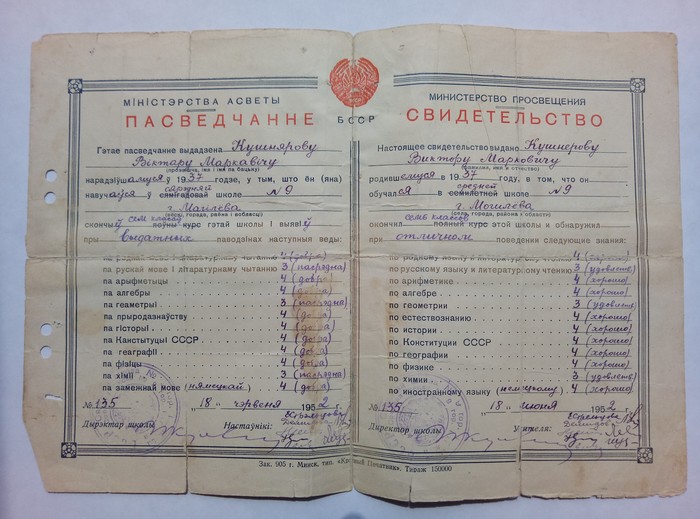 МІНІСТЭРСТВА АСВЕТЫ
ПАСВЕДЧАННЕ
Гэтае пасведчанне выдадзена Кушнярову
Віктару Маркавічу
(прозвішча, імя і імя па бацьку)
нарадзіўшамуся ў 1937 годзе, у тым, што ён (яна)
сярэдняй
навучаўся ў сямігадовай школе №9
г. Магілёва
(сяла, горада, раёна і вобласці)
сем класаў
скончыў поўны курс гэтай школы і выявіў
пры выдатных паводзінах наступныя веды:
па роднай мове і літаратурнаму чытанню 4 (добра)
па рускай мове і літаратурнаму чытанню 3 (пасрэдна)
па арыфметыцы 4 (добра)
па алгебры 4 (добра)
па геаметрыі 3 (пасрэдна)
па прыродазнаўству 4 (добра)
па гісторыі 4 (добра)
па Канстытуцыі СССР 4 (добра)
па геаграфіі 4 (добра)
па фізіцы 4 (добра)
па хіміі 3 (пасрэдна)
па замежнай мове (нямецкай) 4 (добра)
№ 135 "18" чэрвеня 1952 г.
Дырэктар школы Настаўнікі:
БССР
МИНИСТЕРСТВО ПРОСВЕЩЕНИЯ
СВИДЕТЕЛЬСТВО
Настоящее свидетельство выдано Кушнерову
Виктору Марковичу
(фамилия, имя и отчество)
родившемуся в 1937 году, в том, что он
средней
обучался в семилетней школе №9
г. Могилёва
(села, города, района и области)
семь классов
окончил полный курс этой школы и обнаружил
при отличном поведении следующие знания:
по родному языку и литературному чтению 4 (хорошо)
по русскому языку и литературному чтению 3 (удовлетв)
по арифметике 4 (хорошо)
по алгебре 4 (хорошо)
по геометрии 3 (удовлетв)
по естествознанию 4 (хорошо)
по истории 4 (хорошо)
по Конституции СССР 4 (хорошо)
по географии 4 (хорошо)
по физике 4 (хорошо)
по химии 3 (удовлетв)
по иностранному языку (немецкому) 4 (хорошо)
№ 135 "18" июня 1952 г.
Директор школы Учителя:
Зак. 905 г. Минск, тип. «Красный Печатник». Тираж 150000